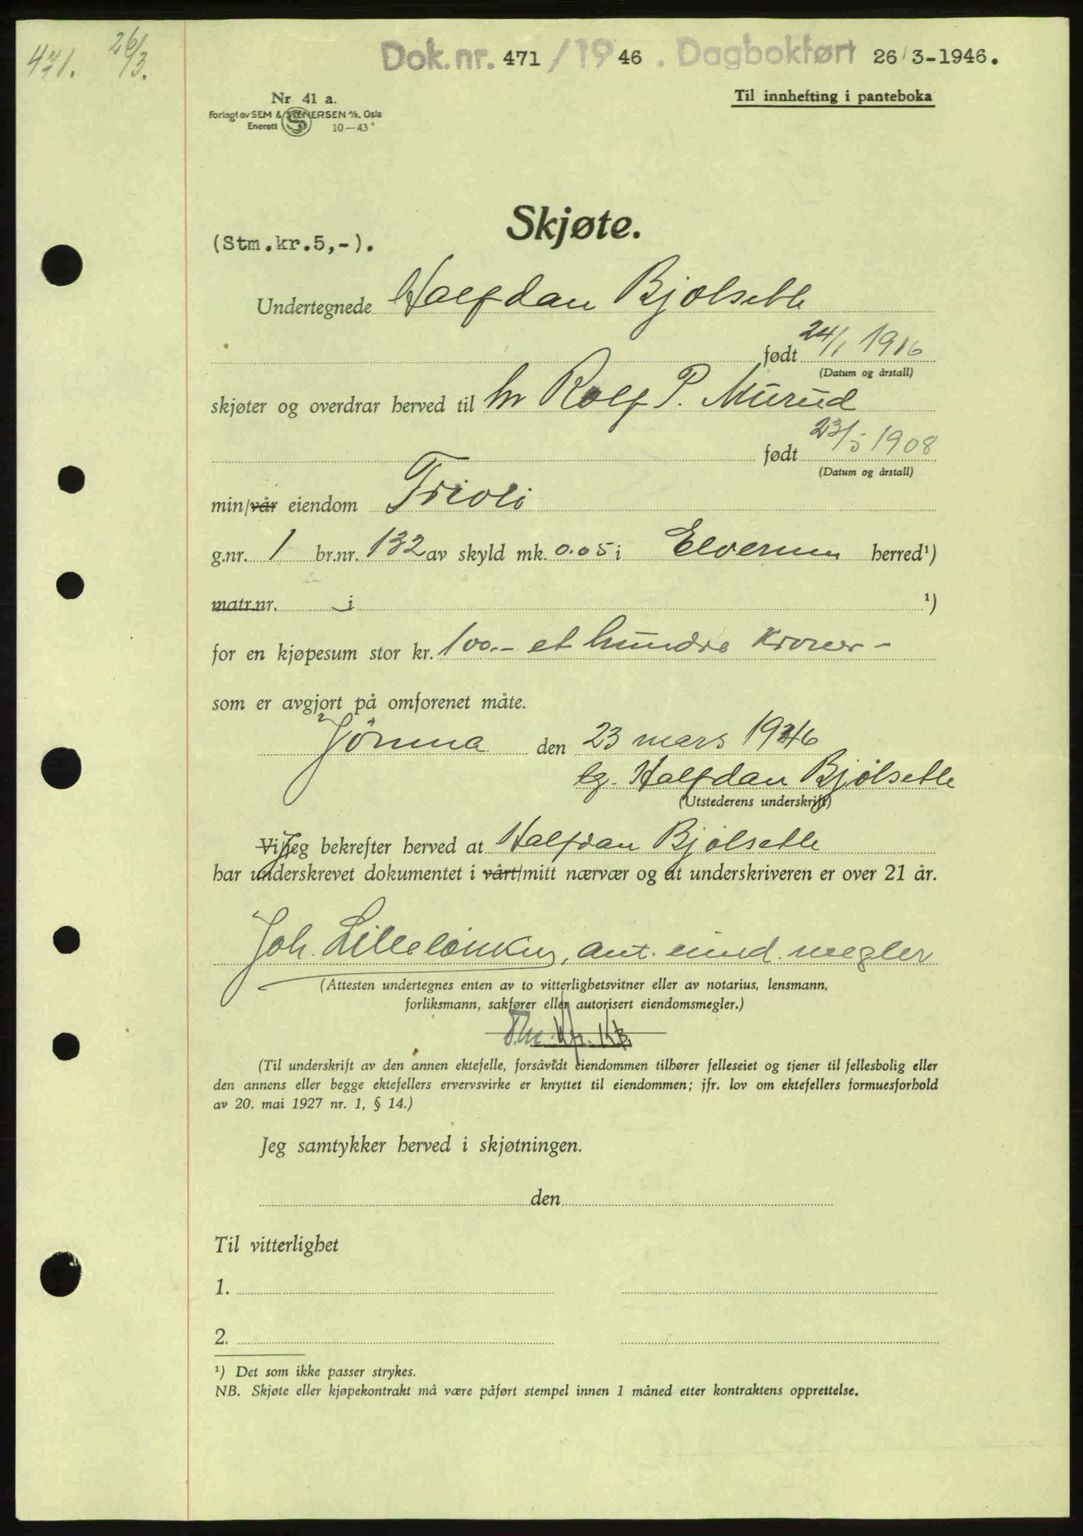 471. 26/3.
Dok.nr. 471 /1946. Dagbokført 26/3-1946.
Nr 41 a.
Til innhefting i panteboka
Forlagt av SEM & STENERSEN A/S, Oslo
Enerett 10—43
Skjøte.
(Stm.kr.5,-).
Undertegnede Halfdan Bjølseth
født 24/1 1916
(Datum og årstall)
skjøter og overdrar herved til hr Rolf P. Murud
født 23/5 1908
(Datum og årstall)
min/vår eiendom Trioli
g.nr. 1 br.nr. 132 av skyld mk. 0.05 i Elverum herred¹)
matr.nr. i ¹)
for en kjøpesum stor kr. 100.- et hundre kroner -
som er avgjort på omforenet måte.
Jømna den 23 mars 1946
sg. Halfdan Bjølseth
(Utstederens underskrift)
Vi/Jeg bekrefter herved at Halfdan Bjølseth
har underskrevet dokumentet i vårt/mitt nærvær og at underskriveren er over 21 år.
Joh. aut. eiend. megler
(Attesten undertegnes enten av to vitterlighetsvitner eller av notarius, lensmann,
forliksmann, sakfører eller autorisert eiendomsmegler.)
(Til underskrift av den annen ektefelle, forsåvidt eiendommen tilhører felleseiet og tjener til fellesbolig eller
den annens eller begge ektefellers ervervsvirke er knyttet til eiendommen; jfr. lov om ektefellers formuesforhold
av 20. mai 1927 nr. 1, § 14.)
Jeg samtykker herved i skjøtningen.
den
Til vitterlighet
1.
2.
¹) Det som ikke passer strykes.
NB. Skjøte eller kjøpekontrakt må være påført stempel innen 1 måned etter kontraktens opprettelse.